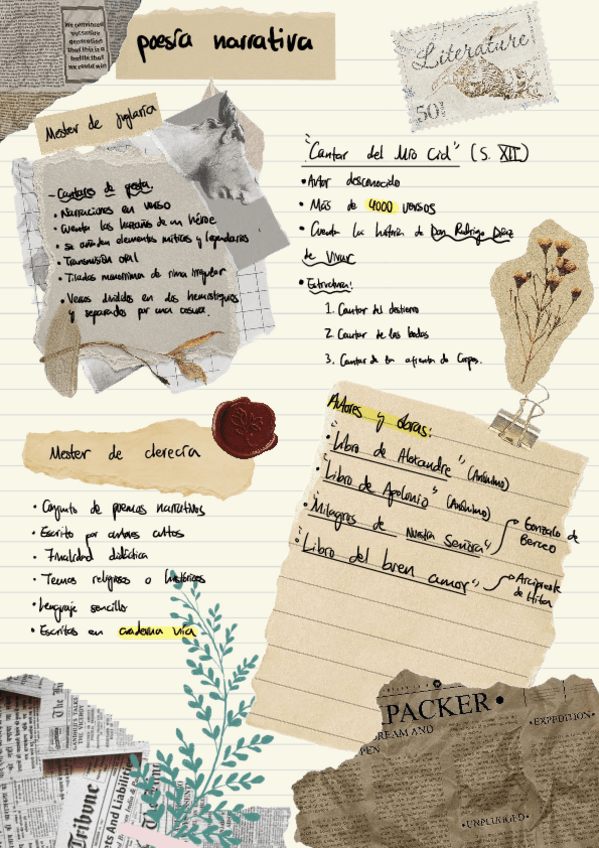 poesía narrativa
Literature
50
Mester de juglaría
- Cantares de gesta.
• Narraciones en verso
• Cuenta las hazañas de un héroe
• se añaden elementos míticos y legendarios
• Transmisión oral
• Tiradas monorrimas de rima irregular
• Versos divididos en dos hemistiquios
y separados por una cesura.
"Cantar del Mio Cid" (S. XII)
• Autor desconocido
• Más de 4000 versos
• Cuenta la historia de Don Rodrigo Díaz
de Vivar
• Estructura:
1. Cantar del destierro
2. Cantar de las bodas
3. Cantar de la afrenta de Corpes.
Mester de clerecía
• Conjunto de poemas narrativos
• Escrito por autores cultos
• Finalidad didáctica
• Temas religiosos o históricos
• Lenguaje sencillo
• Escritas en cuaderna vía
Autores y obras:
• "Libro de Alexandre" (Anónimo)
• "Libro de Apolonio" (Anónimo)
• "Milagros de Nuestra Señora" → Gonzalo de
Berceo
• "Libro del buen amor" → Arcipreste
de Hita
PACKER •
REAM AND
• EXPEDITION •
PEN
• UNPLUGGED •
Tribune
ts And Liabilit